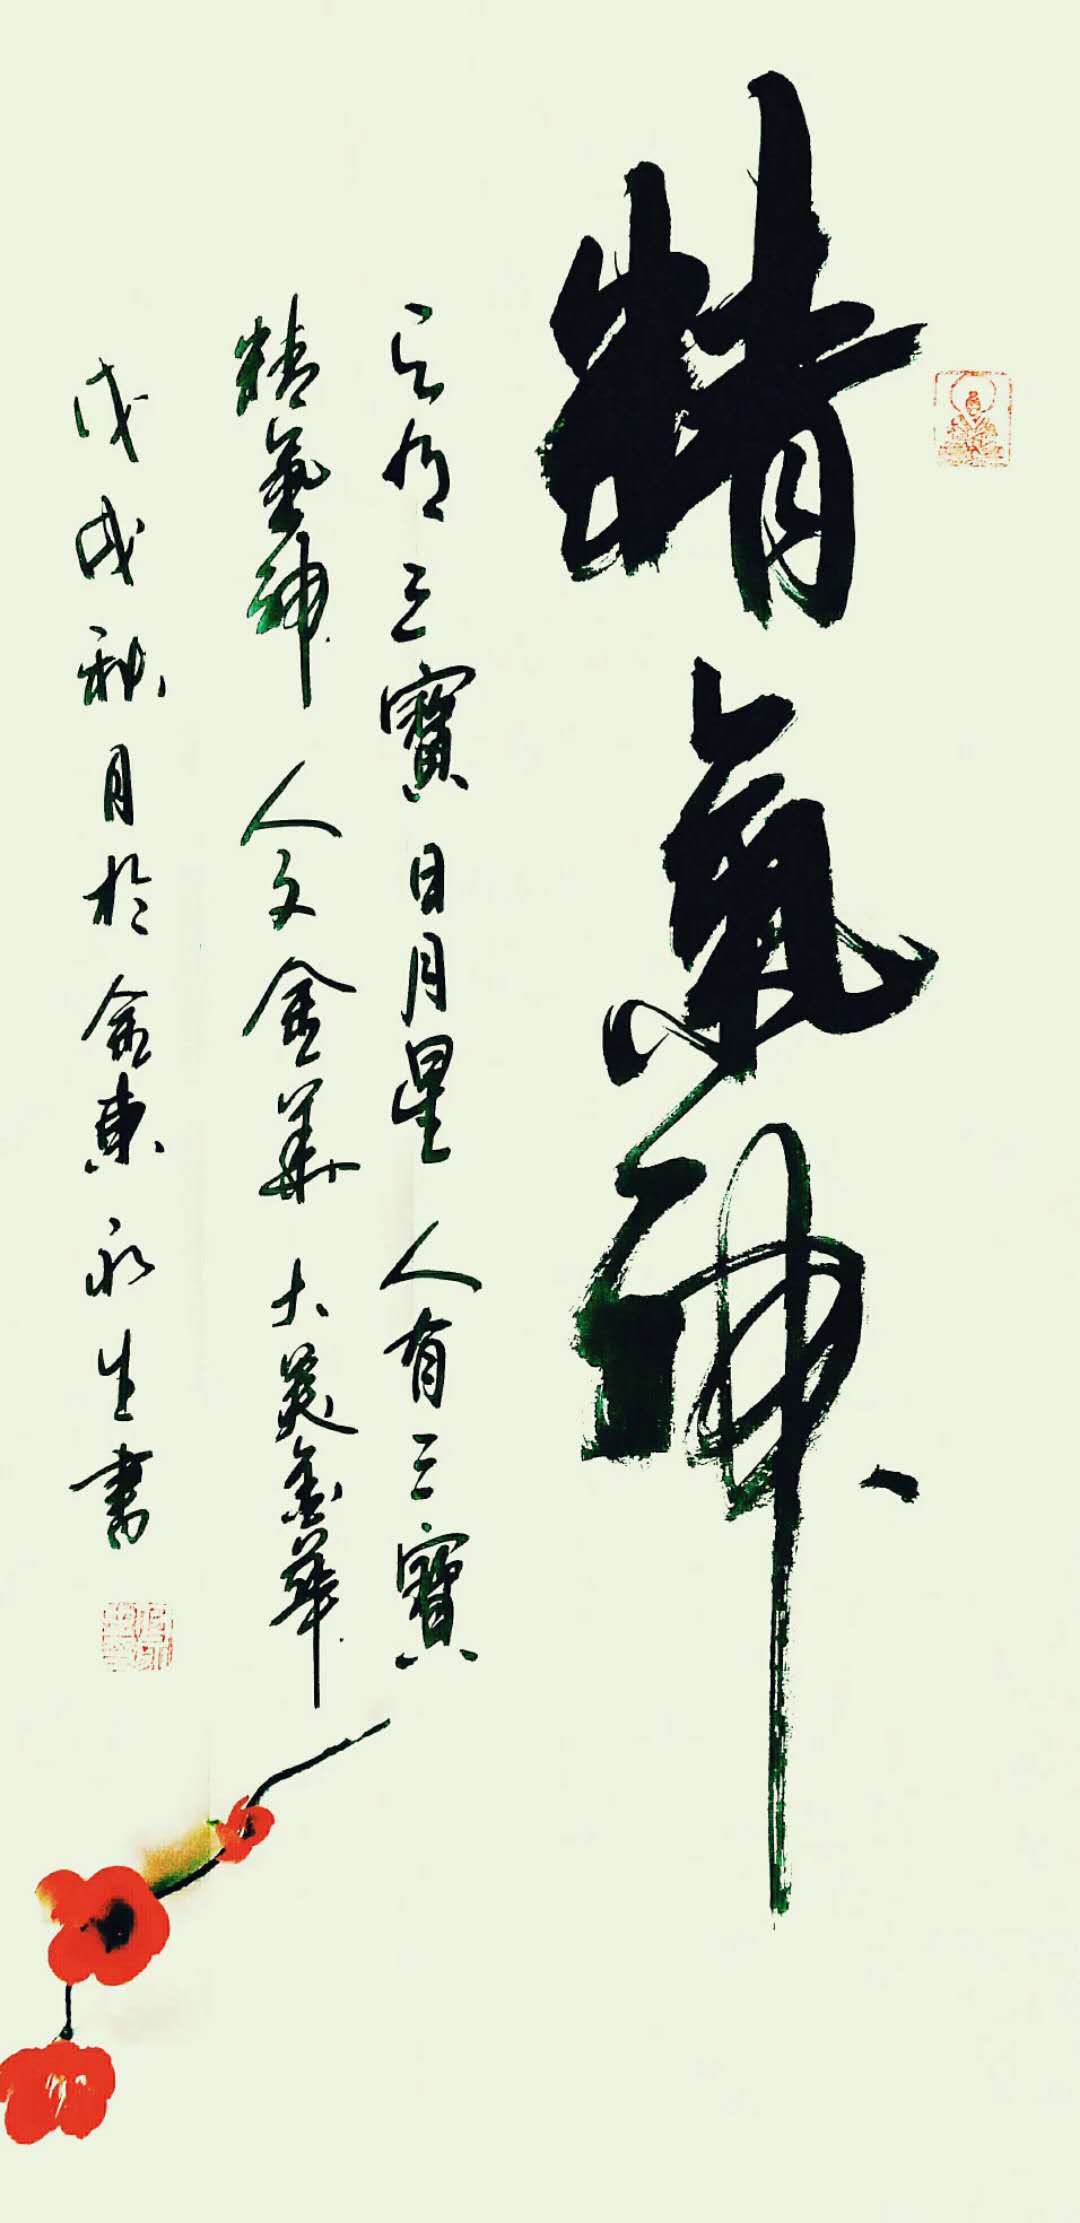 精氣神
天有三寶日月星人有三寶
精氣神人文金華大美金華
戊戌秋月於金東永生書